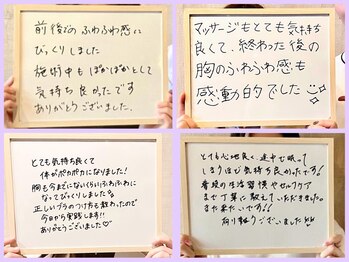 前後での ふわふわ感に
びっくりしました
施術中もぽかぽかとして
気持ち良かったです
ありがとうございました.
マッサージもとても気持ち
良くて、終わった後の
胸のふわふわ感も
感動的でした
とても気持ち良くて
体がポカポカになりました!
胸も今までにないくらいふわふわに
なってびっくりしました。
正しいブラのつけ方も教わったので
今日から実践します!!
ありがとうございました♡
とても心地良く、途中で眠って
しまうほど気持ち良かったです!
普段の生活習慣やセルフケア
まで丁寧に教えていただきました。
また来たいです!!
有り難うございました!!